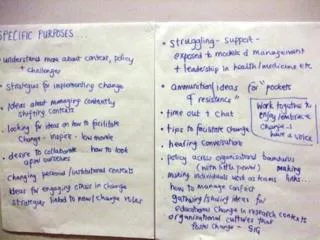 SPECIFIC PURPOSES...
• understand more about context, policy
+ challenges
• Strategies for implementing Change
• Ideas about managing constantly
shifting contexts
• looking for ideas on how to facilitate
change - inspire - low morale
• desire to collaborate... how to look
after ourselves
• Changing personal/institutional contexts
• Ideas for engaging others in change
• strategy linked to new/change roles
• Struggling - support -
exposed to models of management
+ leadership in health/medicine etc
• Ammunition/ideas for "pockets
of resistance"
• time out + chat
• tips to facilitate change
• hearing conversations
Work together to
enjoy/embrace
change -
have a voice
• policy across organisational boundaries
(with little power) making
making individuals work as teams links...
• how to manage conflict
• gathering/sharing ideas for
educational Change in research contexts
• organisational cultures that
foster change - SIG